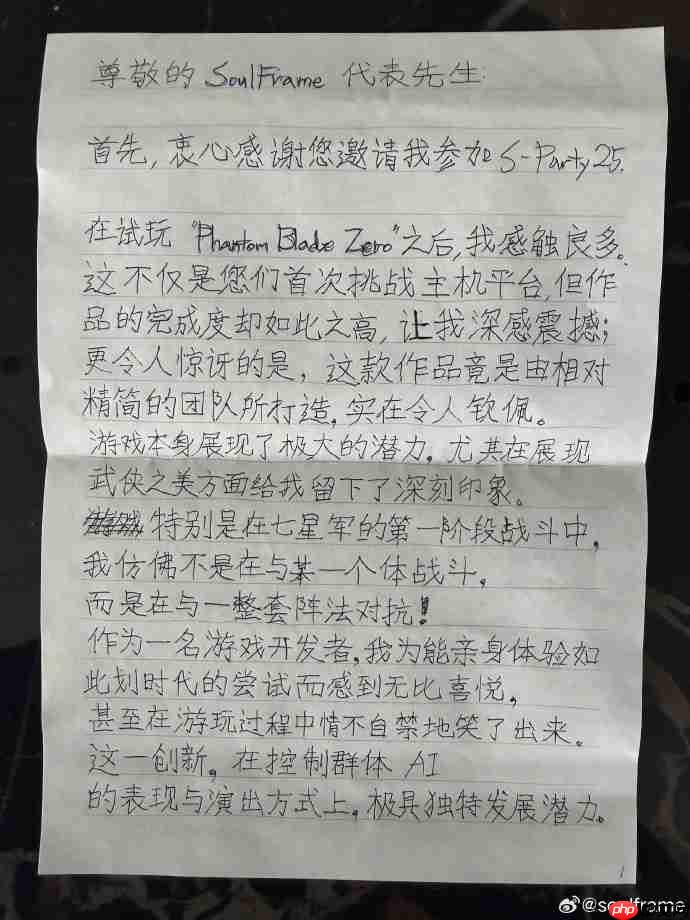 尊敬的 SoulFrame 代表先生:
首先,衷心感谢您邀请我参加 S-Party25.
在试玩 "Phantom Blade Zero"之后,我感触良多。
这不仅是您们首次挑战主机平台,但作
品的完成度却如此之高,让我深感震撼;
更令人惊讶的是,这款作品竟是由相对
精简的团队所打造,实在令人钦佩。
游戏本身展现了极大的潜力,尤其在展现
武侠之美方面给我留下了深刻印象。
特别是在七星军的第一阶段战斗中,
我仿佛不是在与某一个体战斗,
而是在与一整套阵法对抗!
作为一名游戏开发者,我为能亲身体验如
此划时代的尝试而感到无比喜悦,
甚至在游玩过程中情不自禁地笑了出来。
这一创新,在控制群体 AI
的表现与演出方式上,极具独特发展潜力。
1
@soulframe
php